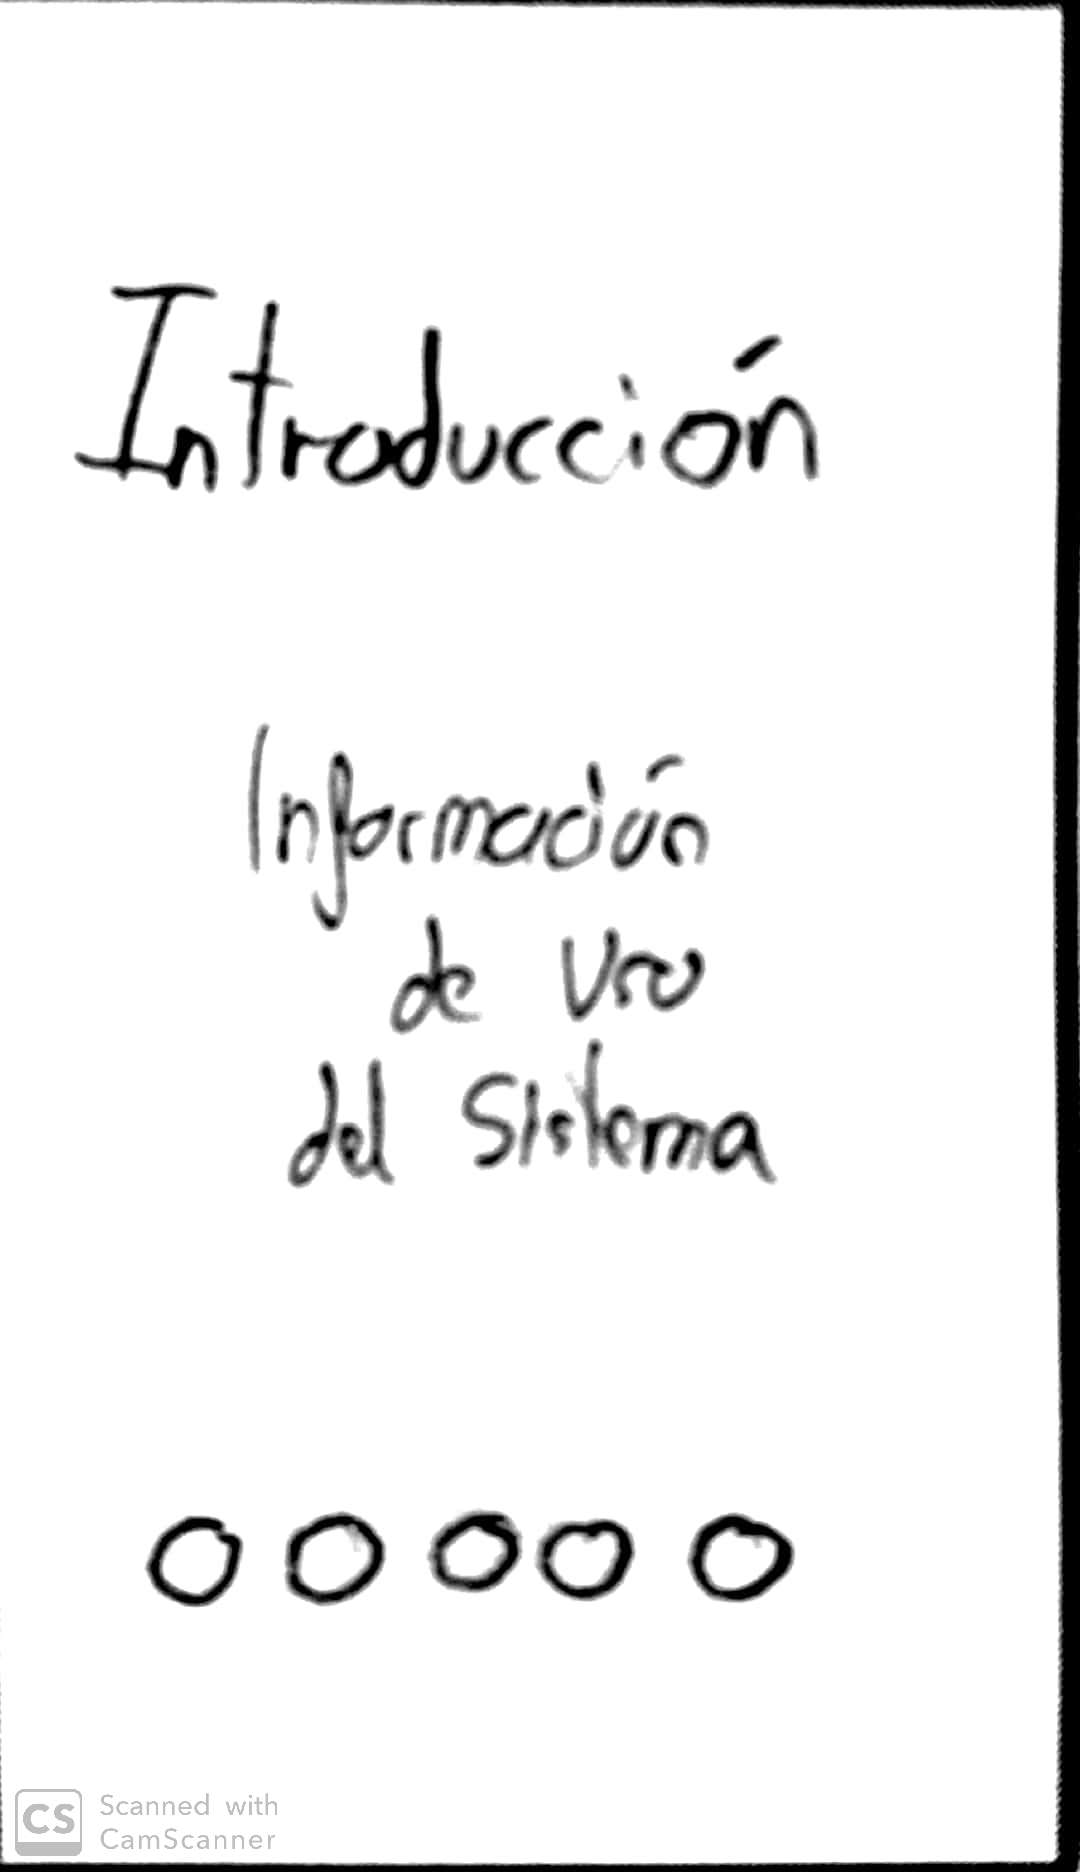 Introducción
Información
de Uso
del Sistema
CS
Scanned with
CamScanner